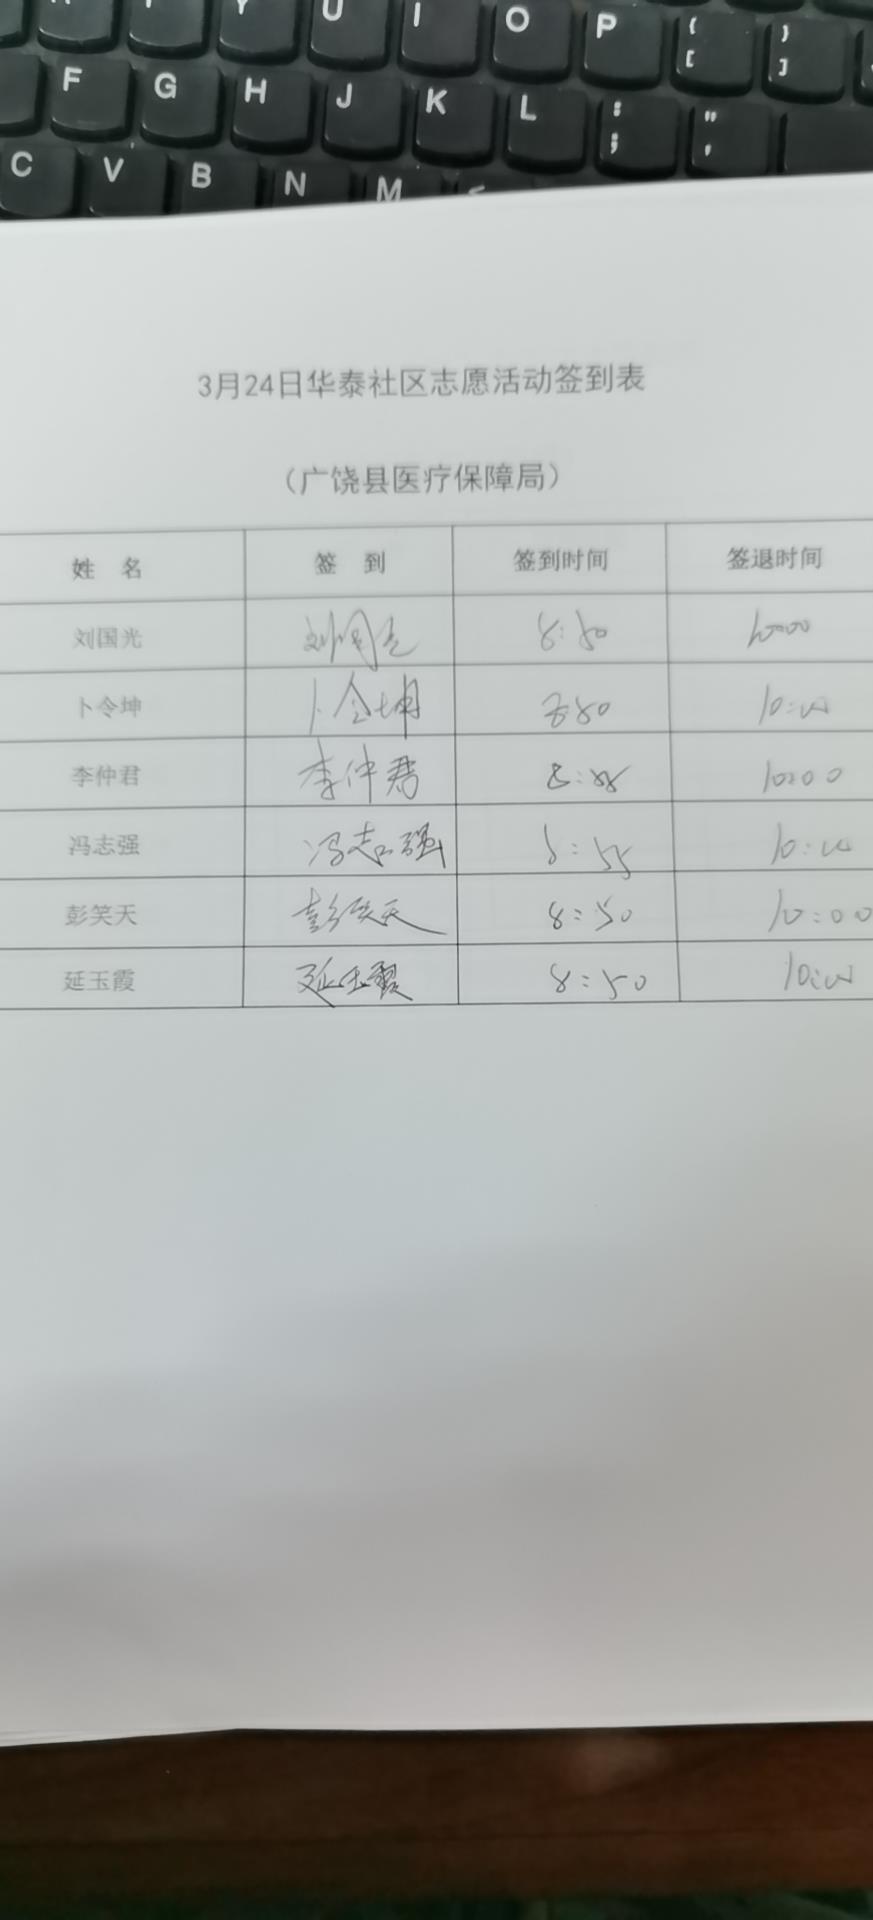 Y U I O P { [ } ]
F G H J K L : ; " '
C V B N M <
3月24日华泰社区志愿活动签到表
（广饶县医疗保障局）
姓 名 签 到 签到时间 签退时间
刘国光 刘国光 8:50 10:00
卜令坤 卜令坤 8:50 10:00
李仲君 李仲君 10:00
冯志强 冯志强 8:55 10:00
彭笑天 彭笑天 8:50 10:00
延玉霞 延玉霞 8:50 10:00